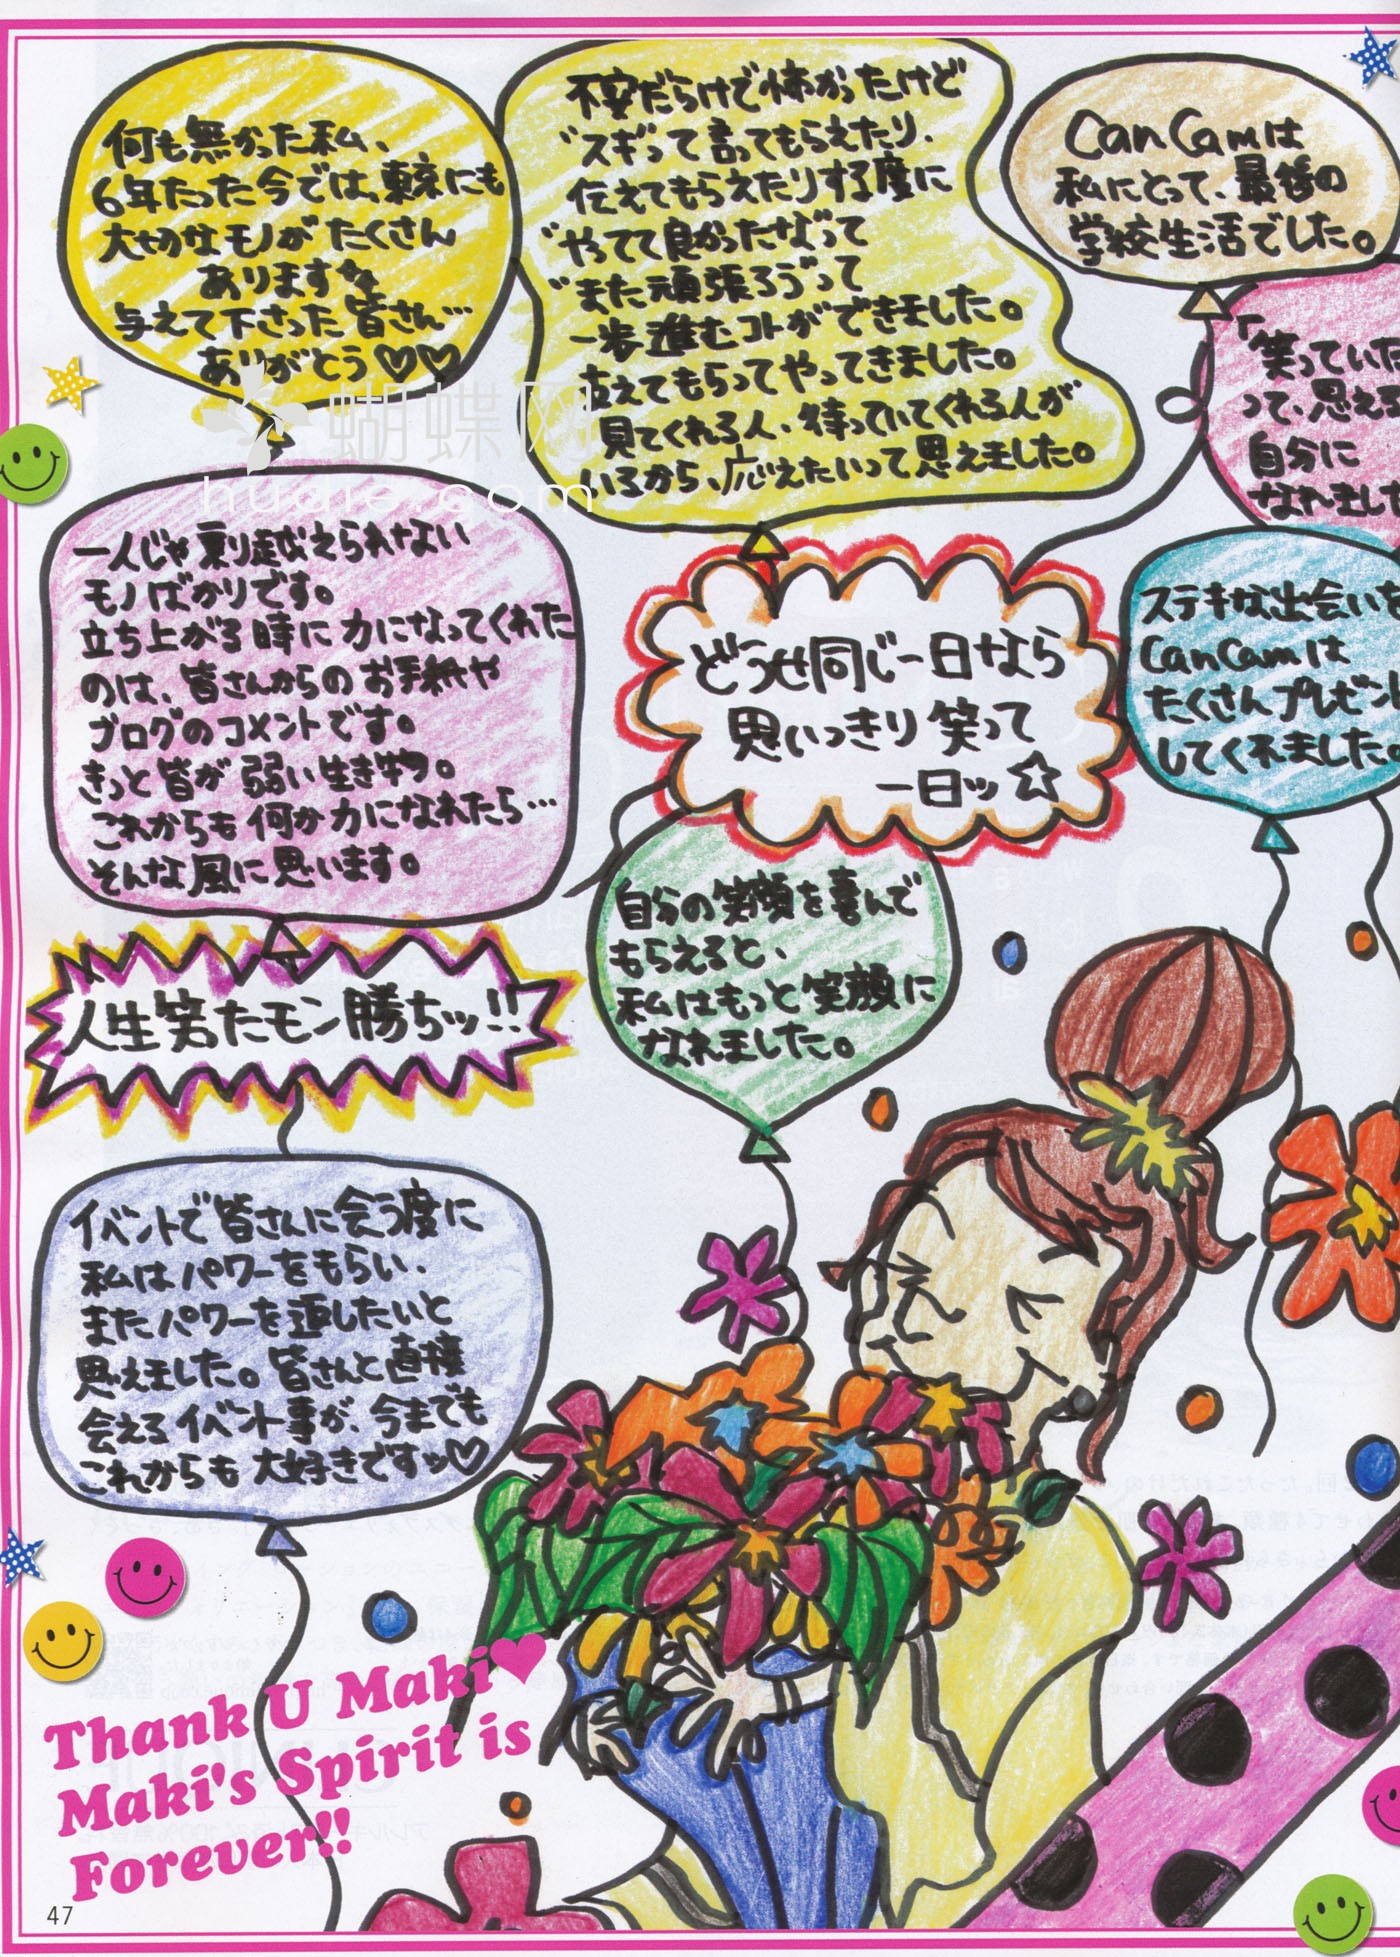 何も無かった私、
6年たった今では、東京にも
大切なモノがたくさん
あります
与えて下さった皆さん…
ありがとう♡♡
不安だらけで怖かったけど
"スキ"って言ってもらえたり、
伝えてもらえたりする度に
"やってて良かったな"って
"また頑張ろう"って
一歩進むコトができました。
支えてもらってやってきました。
見てくれる人、待っていてくれる人が
いるから、応えたいって思えました。
CanCamは
私にとって、最後の
学校生活でした。
「笑っていた
って、思え
自分に
なれました
蝴蝶网
hudie.com
一人じゃ乗り越えられない
モノばかりです。
立ち上がる時に力になってくれた
のは、皆さんからのお手紙や
ブログのコメントです。
きっと皆が弱い生き物。
これからも何か力になれたら…
そんな風に思います。
どうせ同じ一日なら
思いっきり笑って
一日ッ☆
ステキな出会いを
CanCamは
たくさんプレゼント
してくれました。
自分の笑顔を喜んで
もらえると、
私はもっと笑顔に
なれました。
人生笑たモン勝ちッ!!
イベントで皆さんに会う度に
私はパワーをもらい、
またパワーを返したいと
思えました。皆さんと直接
会えるイベント事が、今までも
これからも大好きですッ♡
Thank U Maki♥
Maki's Spirit is
Forever!!
47